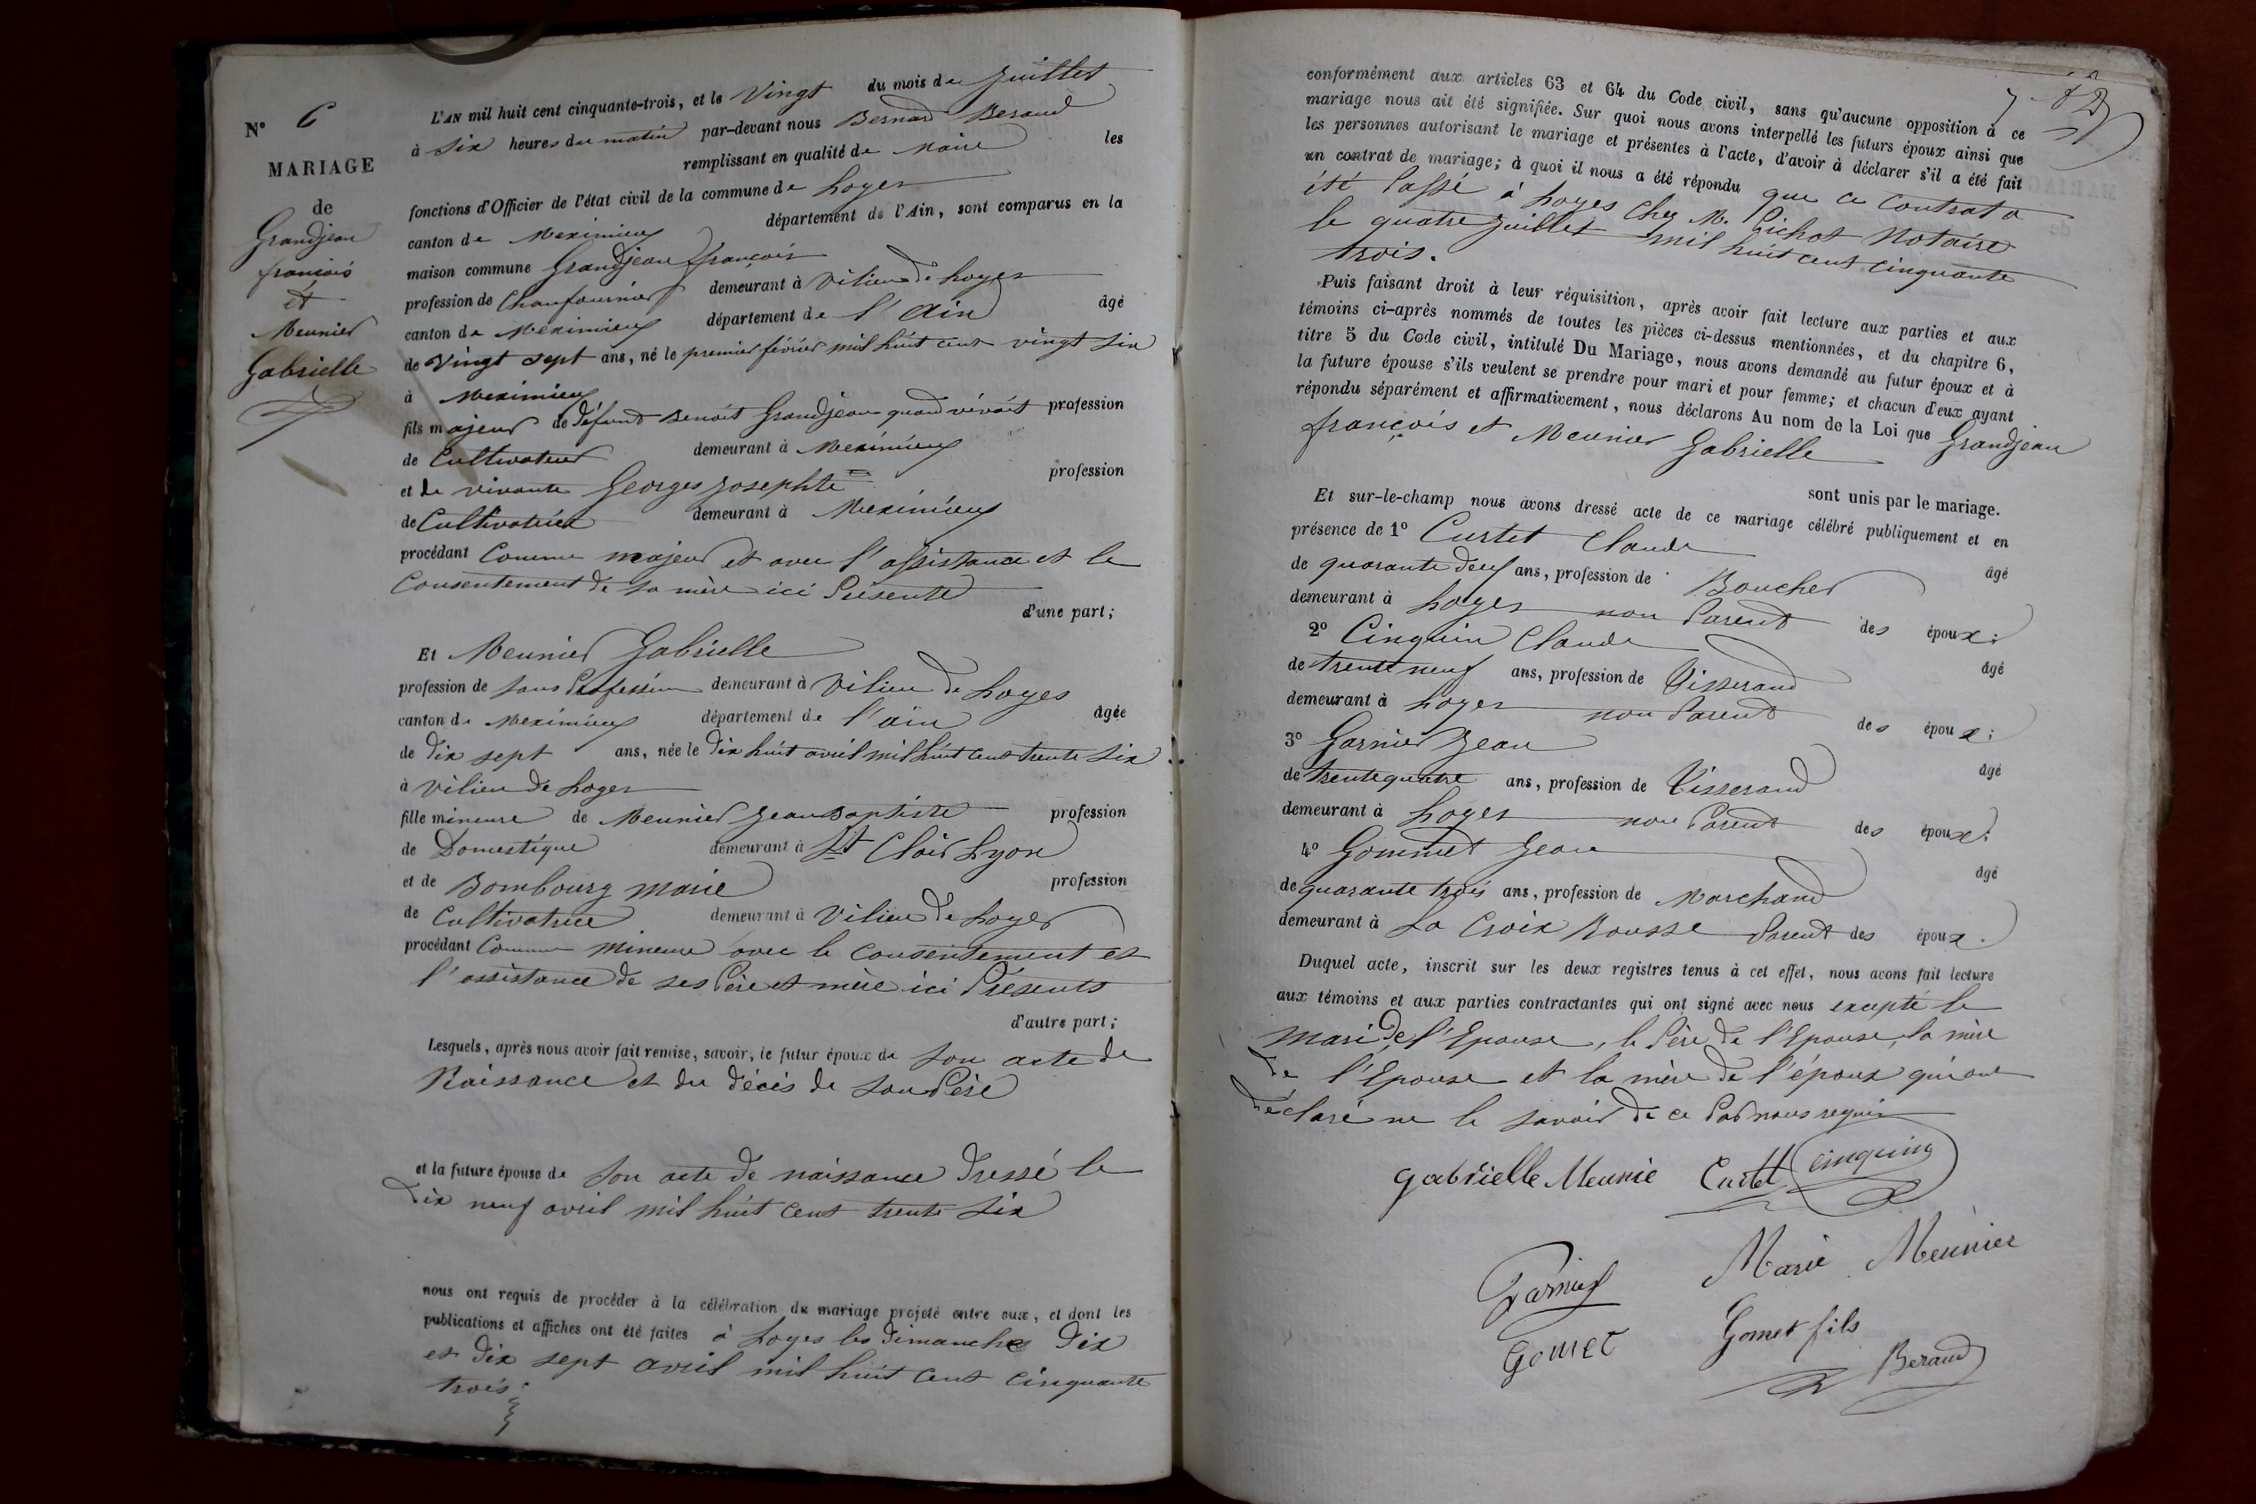 N° 6
MARIAGE
de
Grandjean
francois
et
Meunier
Gabrielle
L'AN mil huit cent cinquante-trois, et le Vingt du mois de Juillet
à six heures du matin par-devant nous Bernard Beraud
remplissant en qualité de Maire les
fonctions d'Officier de l'état civil de la commune de Loyes
canton de Meximieux département de l'Ain, sont comparus en la
maison commune Grandjean françois
profession de Chaufournier demeurant à Vilieu de Loyes
canton de Meximieux département de l'Ain âgé
de Vingt sept ans, né le premier février mil huit cent vingt six
à Meximieux
fils majeur de défunt Benoit Grandjean quand vivait profession
de Cultivateur demeurant à Meximieux
et de vivante Georges Josephte profession
de Cultivatrice demeurant à Meximieux
procédant Comme majeur et avec l'assistance et le
Consentement de sa mère ici Présente
d'une part;
Et Meunier Gabrielle
profession de sans Profession demeurant à Vilieu de Loyes
canton de Meximieux département de l'ain âgée
de dix sept ans, née le dix huit avril mil huit cent trente six
à Vilieu de Loyes
fille mineure de Meunier Jean Baptiste profession
de Domestique demeurant à St Clair Lyon
et de Bombourg Marie profession
de Cultivatrice demeurant à Vilieu de Loyes
procédant Comme mineure avec le Consentement et
l'assistance de ses Père et mère ici Présents
d'autre part;
Lesquels, après nous avoir fait remise, savoir, le futur époux de son acte de
Naissance et du décès de son Père
et la future épouse de son acte de naissance dressé le
dix neuf avril mil huit cent trente six
nous ont requis de procéder à la célébration du mariage projeté entre eux, et dont les
publications et affiches ont été faites à Loyes les dimanches dix
et dix sept avril mil huit cent cinquante
trois
conformément aux articles 63 et 64 du Code civil, sans qu'aucune opposition à ce
mariage nous ait été signifiée. Sur quoi nous avons interpellé les futurs époux ainsi que
les personnes autorisant le mariage et présentes à l'acte, d'avoir à déclarer s'il a été fait
un contrat de mariage; à quoi il nous a été répondu que ce Contrat a
été Passé à Loyes chez M. Pichot Notaire
le quatre Juillet mil huit cent cinquante
trois.
Puis faisant droit à leur réquisition, après avoir fait lecture aux parties et aux
témoins ci-après nommés de toutes les pièces ci-dessus mentionnées, et du chapitre 6,
titre 5 du Code civil, intitulé Du Mariage, nous avons demandé au futur époux et à
la future épouse s'ils veulent se prendre pour mari et pour femme; et chacun d'eux ayant
répondu séparément et affirmativement, nous déclarons Au nom de la Loi que Grandjean
françois et Meunier Gabrielle
sont unis par le mariage.
Et sur-le-champ nous avons dressé acte de ce mariage célébré publiquement et en
présence de 1° Curtet Claude âgé
de quarante deux ans, profession de Boucher
demeurant à Loyes non Parent des époux;
2° Cinquin Claude âgé
de trente neuf ans, profession de Tisserand
demeurant à Loyes non Parent des époux;
3° Garnier Jean âgé
de trente quatre ans, profession de Tisserand
demeurant à Loyes non Parent des époux;
4° Gommet Jean âgé
de quarante trois ans, profession de Marchand
demeurant à La Croix Rousse Parent des époux.
Duquel acte, inscrit sur les deux registres tenus à cet effet, nous avons fait lecture
aux témoins et aux parties contractantes qui ont signé avec nous excepté le
mari de l'Epouse, le Père de l'Epouse, la mère
de l'Epouse et la mère de l'époux qui ont
déclaré ne le savoir de ce Par nous requis
gabrielle Meunie Curtet Cinquin
Garnier Marie Meunier
Gomet Gomet fils
Beraud